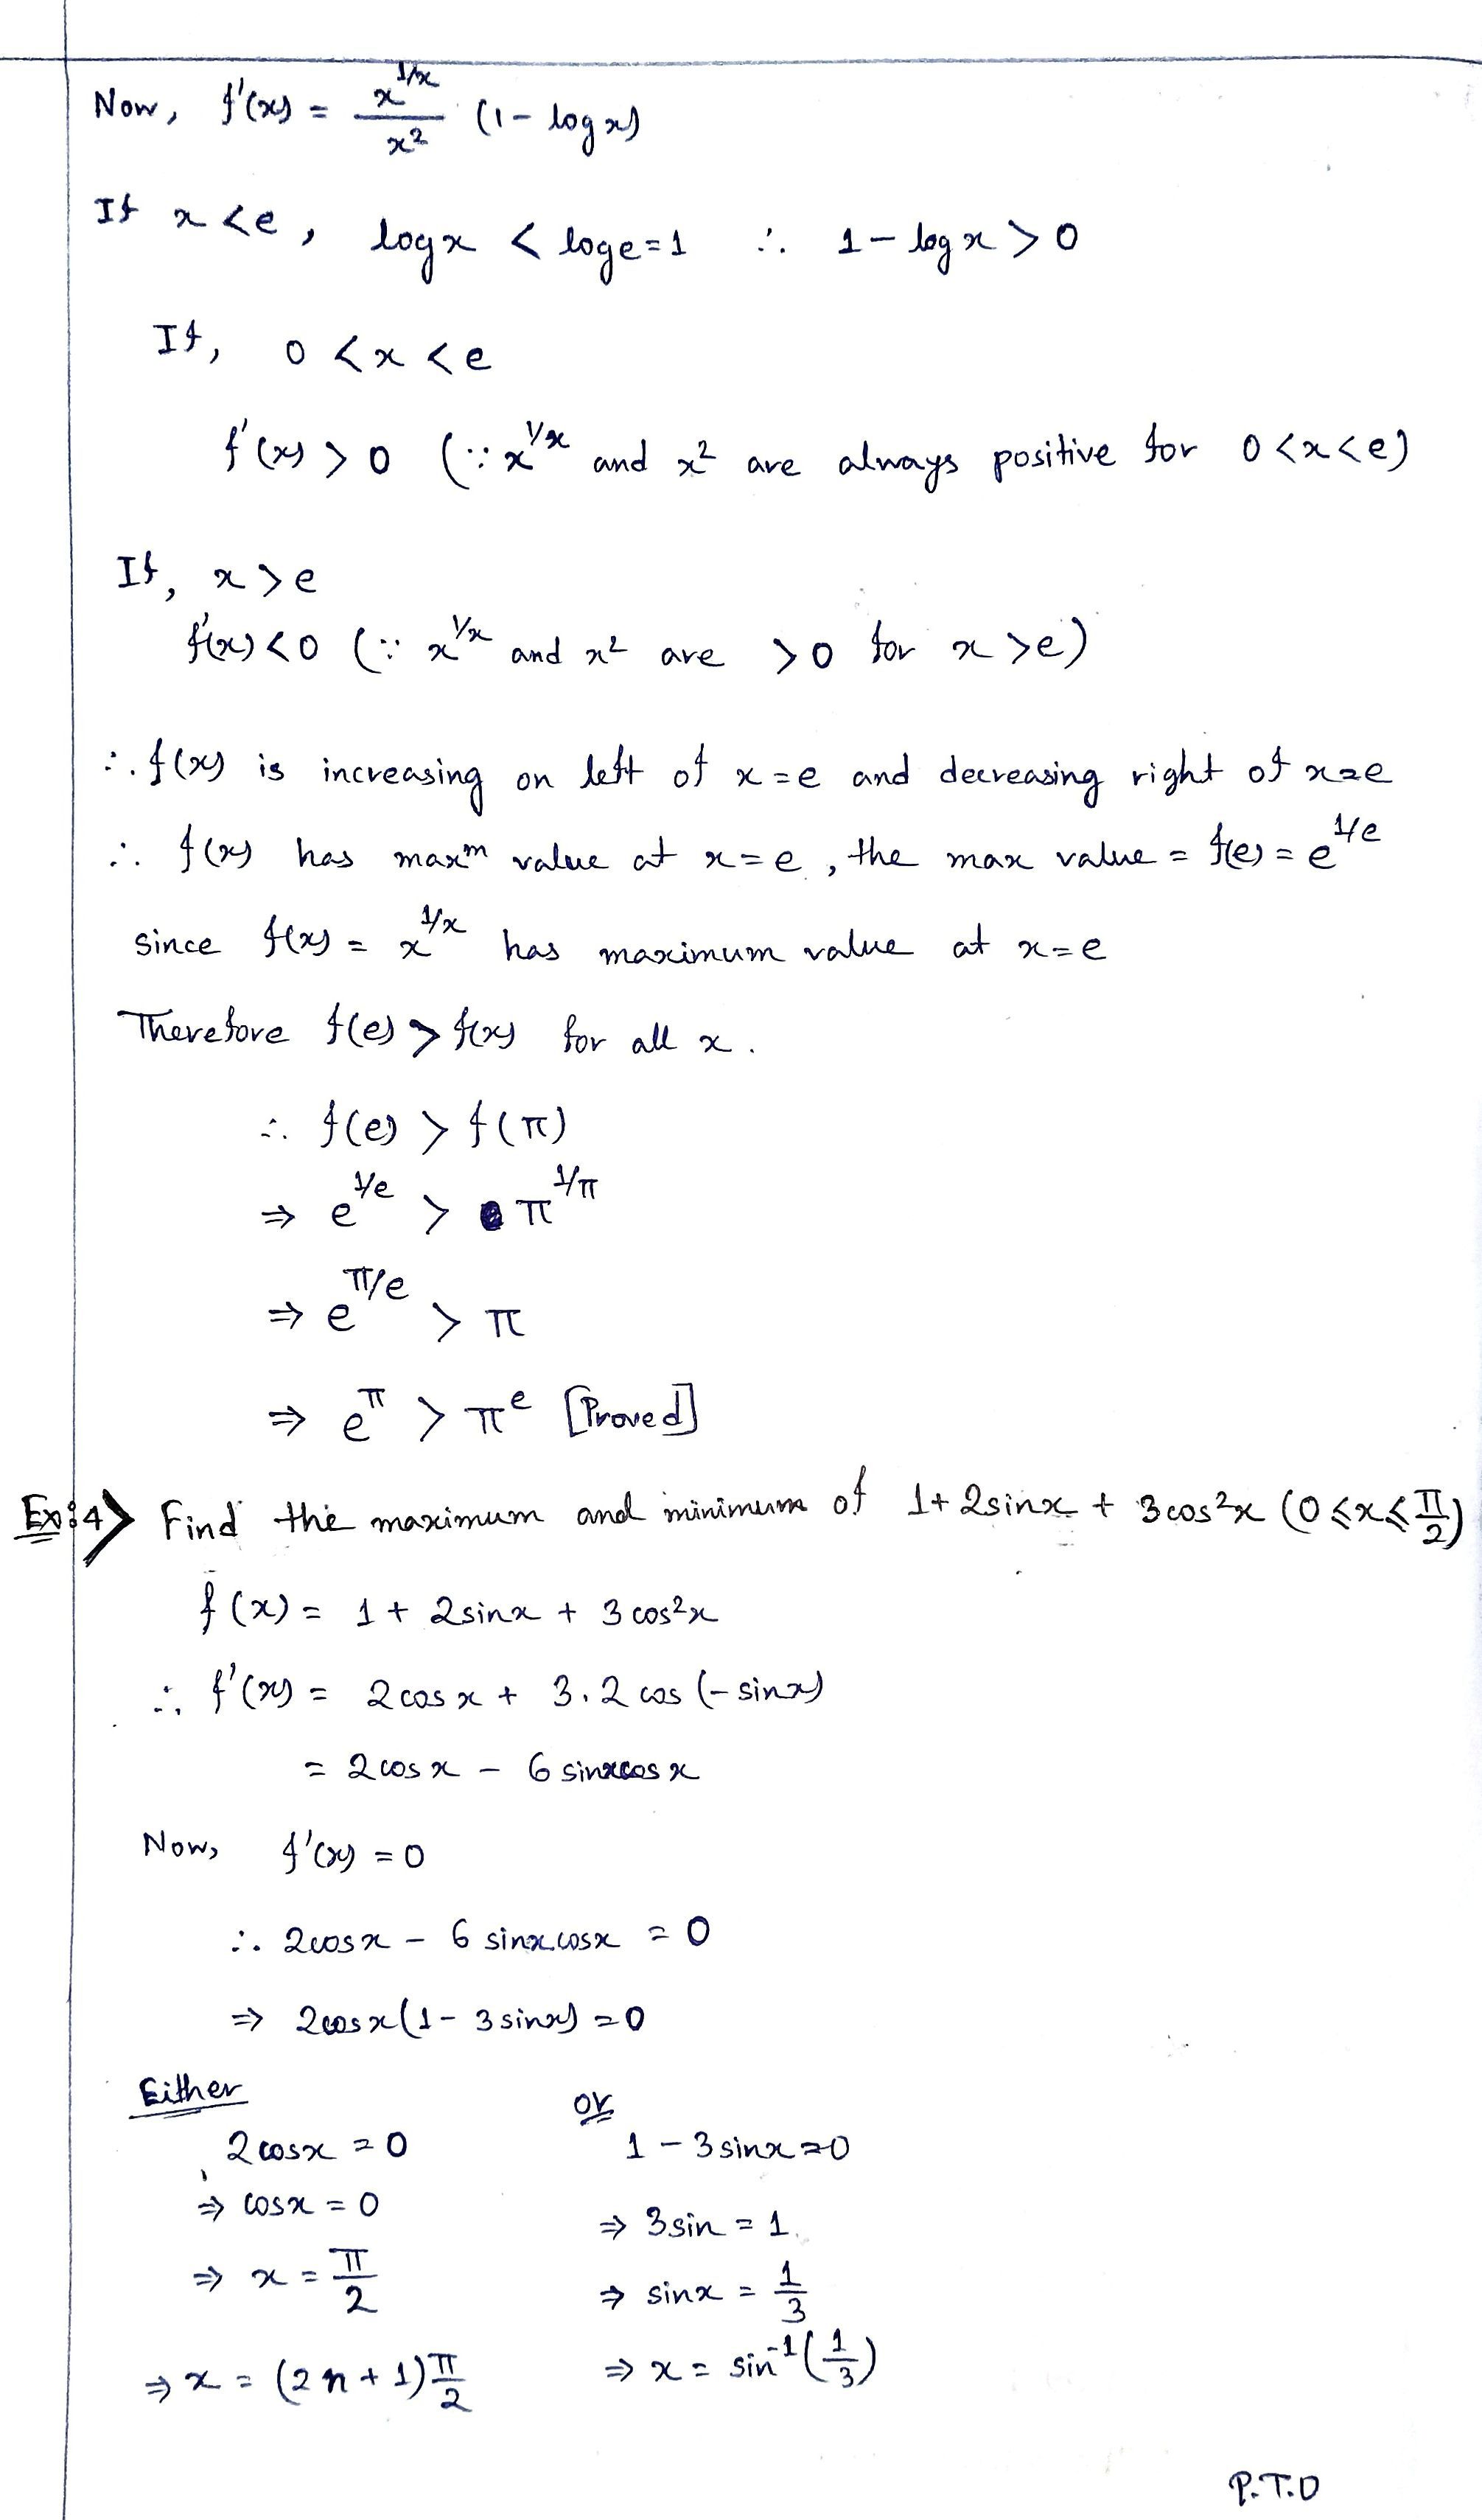 Now, f'(x) = x^{1/x}/x² (1 - log x)
If x < e, log x < log e = 1 ∴ 1 - log x > 0
If, 0 < x < e
f'(x) > 0 (∵ x^{1/x} and x² are always positive for 0 < x < e)
If, x > e
f'(x) < 0 (∵ x^{1/x} and x² are > 0 for x > e)
∴ f(x) is increasing on left of x = e and decreasing right of x = e
∴ f(x) has maxᵐ value at x = e, the max value = f(e) = e^{1/e}
since f(x) = x^{1/x} has maximum value at x = e
Therefore f(e) > f(x) for all x.
∴ f(e) > f(π)
⇒ e^{1/e} > π^{1/π}
⇒ e^{π/e} > π
⇒ e^π > π^e [Proved]
Ex:4> Find the maximum and minimum of 1 + 2 sin x + 3 cos² x (0 ≤ x ≤ π/2)
f(x) = 1 + 2 sin x + 3 cos² x
∴ f'(x) = 2 cos x + 3.2 cos (- sin x)
= 2 cos x - 6 sin x cos x
Now, f'(x) = 0
∴ 2 cos x - 6 sin x. cos x = 0
⇒ 2 cos x (1 - 3 sin x) = 0
Either
2 cos x = 0
⇒ cos x = 0
⇒ x = π/2
⇒ x = (2n + 1) π/2
or
1 - 3 sin x = 0
⇒ 3 sin = 1
⇒ sin x = 1/3
⇒ x = sin⁻¹(1/3)
P.T.O